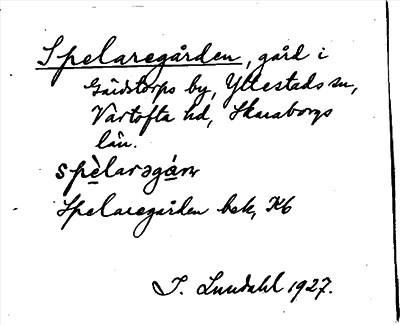 Spelaregården, gård i
Gäistorps by, Yllestads sn,
Vartofta hd, Skaraborgs
län.
spèlarəgá̱ṇ
Spelaregården bek, K6
I. Lundahl 1927.